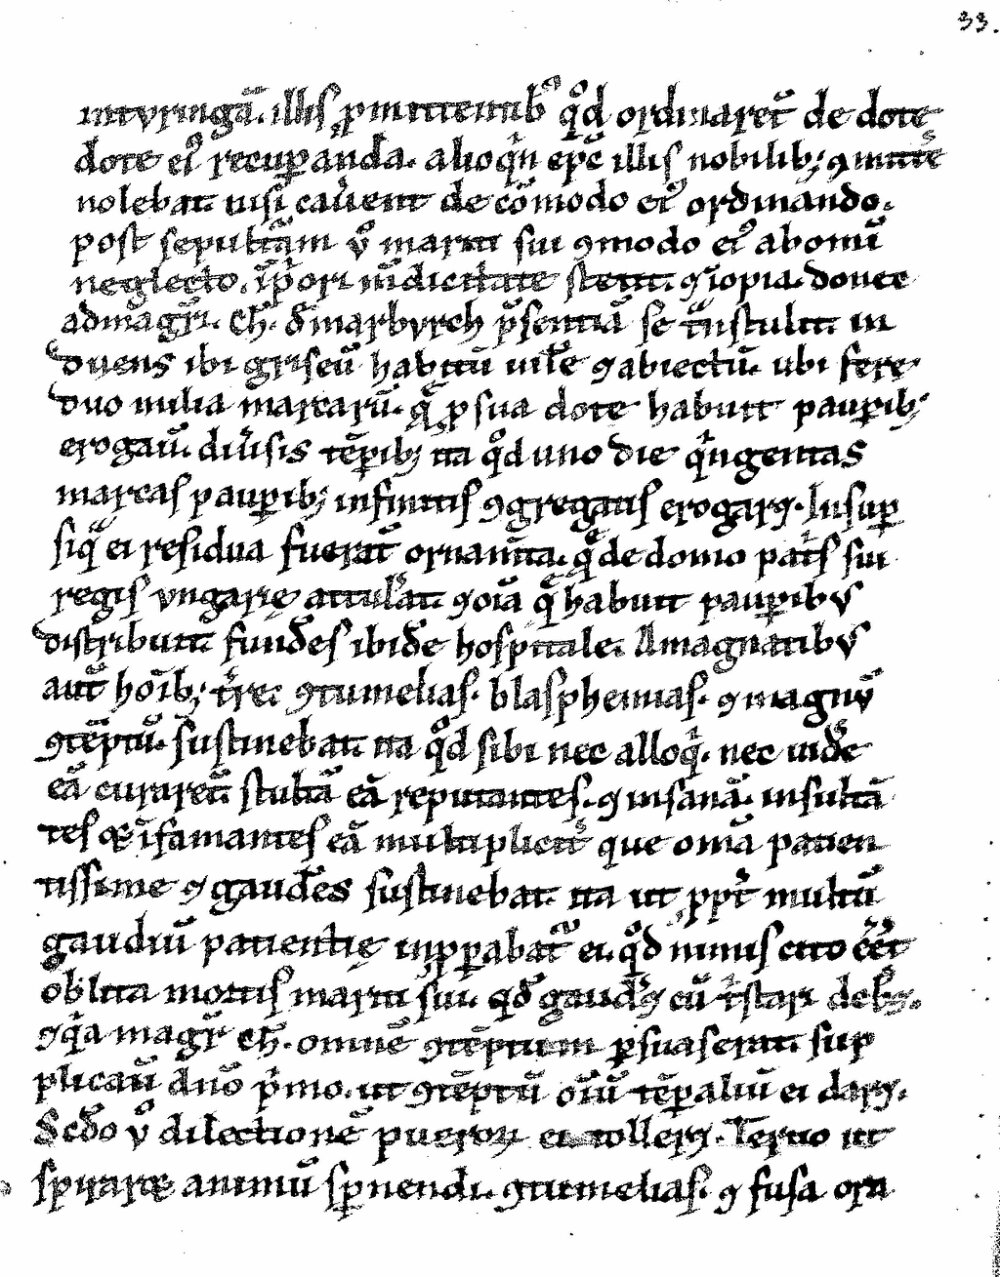 33.
inturingā. illis ꝓmittentibꝰ qd ordinaret̄ de dote
dote eiꝰ recuꝑanda. alioqn epc̄ illis nobilib; ꝯmitte
nolebat nisi cauent de cōmodo eiꝰ ordinando.
post sepulturam v̊ mariti sui ꝯmodo eiꝰ abomī
neglecto. īpriori mēdicitate stetit. ꝯ īopia. donec
ad magr̄. Ch. d̄ marburch p̄sentiā se trāstulit in
duens ibi griseū habitū uilē ꝯ abiectū. ubi fere
duo milia marcarū. q̄ ꝓ sua dote habuit pauꝑib;
erogauit diūsis tēꝑib; ita qd uno die qingentas
marcas pauꝑib; infinitis ꝯgregatis erogaret. Insuꝑ
siq̄ ei residua fuerat̄ ornam̄ta. q̄ de domo patis sui
regis vngarię attulāt. ꝯ oīa q̄ habuit pauꝑibus
distribuit fundēs ibidē hospitale. A magnatibus
aut̄ hoīb; tr̄re. ꝯtumelias. blasphemias. ꝯ magnū
ꝯtēptū. sustinebat. ita qd sibi nec alloqi. nec uidē
eā curaret̄ stultā eā reputantes. ꝯ insanā. insultā
tes ꝯ īfamantes eā multiplicit̄ que omīa patien
tissime ꝯ gaudēs sustinebat. ita ut ppt̄ multū
gaudiū patientię inꝓꝑabat̄ ei. qd nimis cito eēt
oblita mortis mariti sui. qd̄ gaud̄et cū tristari deb;et.
ꝯ qia magr̄ Ch. omnē ꝯtēptum ꝑsuaserat. sup
plicauit dn̄o p̄mo. ut ꝯtēptū oīū tēꝑaliū ei daret.
Scd̄o v̊ dilectionē pueroꝝ ei tolleret. Tertio ut
spiraret animū sꝑnendi. ꝯtumelias. ꝯ fusa orā